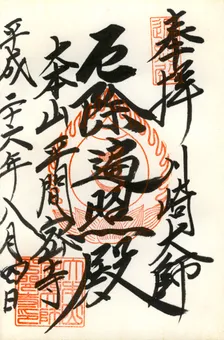 奉拝 川崎大師
厄除遍照殿
大本山 平間寺
平成二十六年八月四日